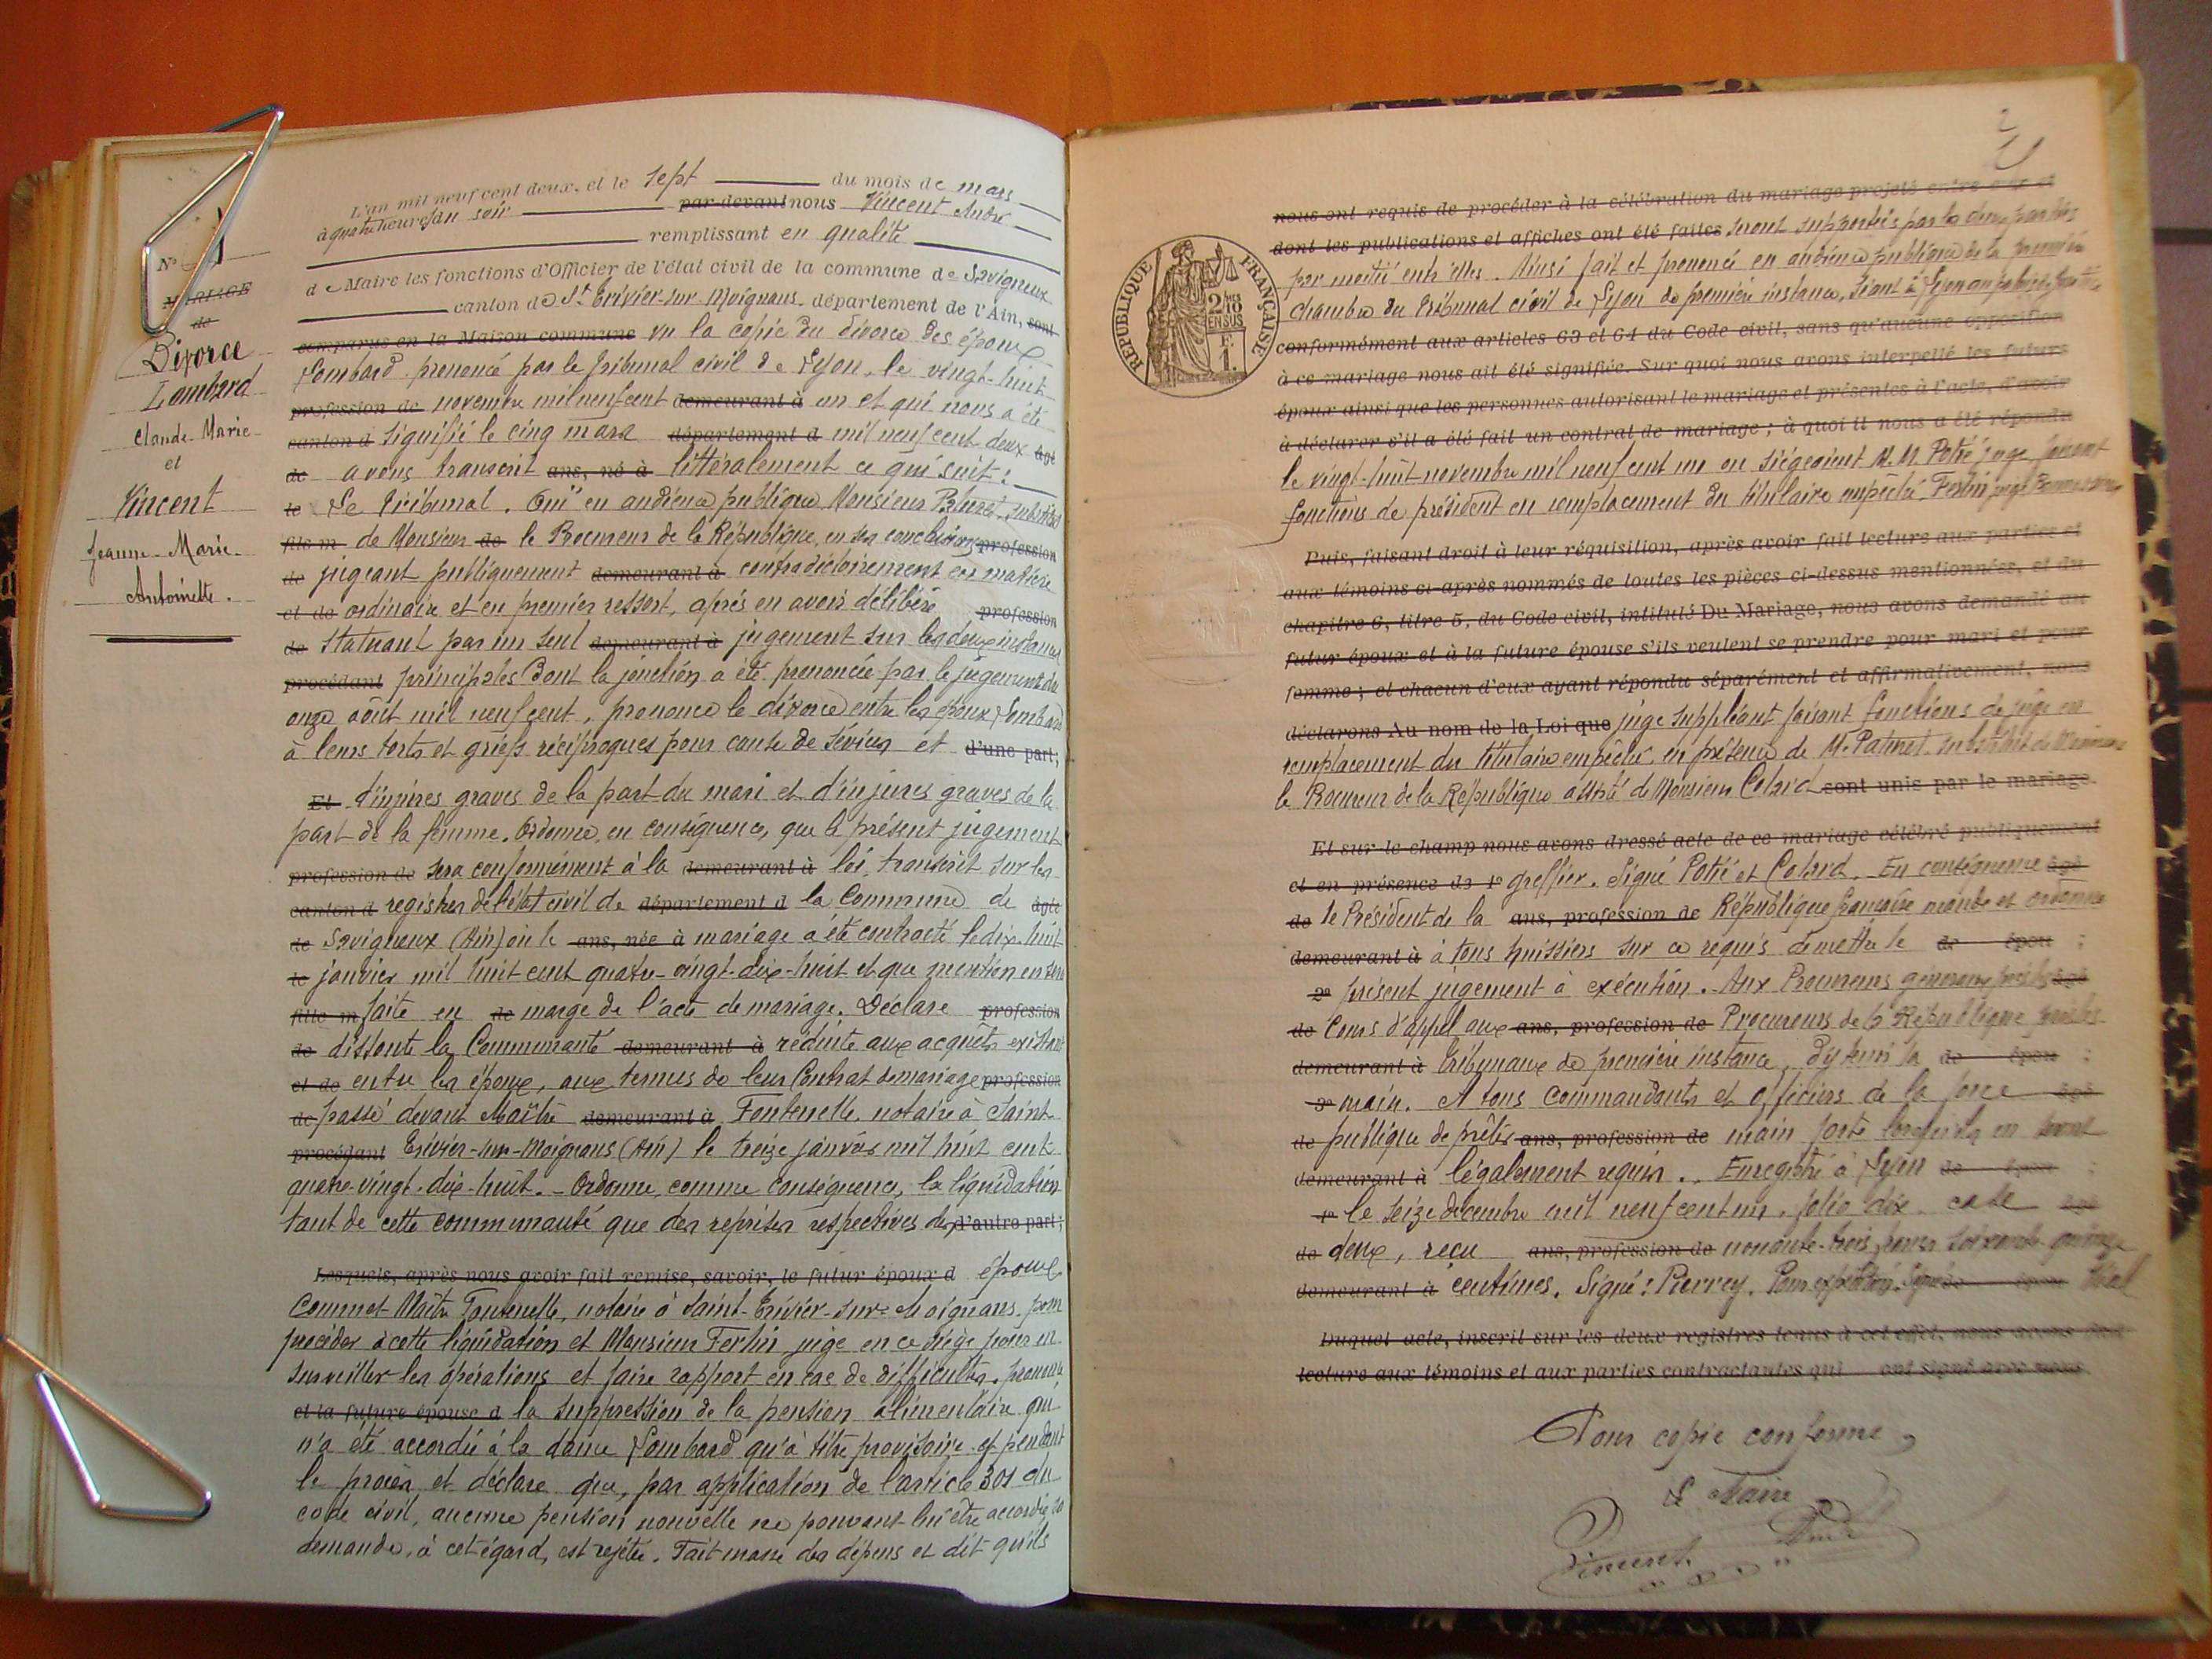 N° 1
MARIAGE
de
Divorce
Lombard
Claude-Marie
et
Vincent
Jeanne-Marie-
Antoinette.
L'an mil neuf cent deux, et le sept du mois de mars
à quatre heures du soir par-devant nous Vincent André
remplissant en qualité
de Maire les fonctions d'Officier de l'état civil de la commune de Savigneux
canton de St Trivier-sur-Moignans département de l'Ain, sont
comparus en la Maison commune vu la copie du divorce des époux
Lombard prononcé par le Tribunal civil de Lyon, le vingt-huit
profession de novembre mil neuf cent demeurant à un et qui nous a été
canton d signifié le cinq mars département d mil neuf cent deux âgé
de avons transcrit ans, né à littéralement ce qui suit:
le Le Tribunal. Ouï en audience publique Monsieur substitut
fils m de Monsieur de le Procureur de la République, en ses conclusions profession
de jugeant publiquement demeurant à contradictoirement en matière
et de ordinaire et en premier ressort, après en avoir délibéré profession
de statuant par un seul demeurant à jugement sur les deux instances
procédant principales dont la jonction a été prononcée par le jugement du
onze août mil neuf cent, prononce le divorce entre les époux Lombard
à leurs torts et griefs réciproques pour cause de sévices et d'une part;
Et d'injures graves de la part du mari et d'injures graves de la
part de la femme. Ordonne, en conséquence, que le présent jugement
profession de sera conformément à la demeurant à loi, transcrit sur les
canton d registres de l'état civil de département d la Commune de âgée
de Savigneux (Ain) où le ans, née à mariage a été contracté le dix-huit
le janvier mil huit cent quatre-vingt-dix-huit et que mention en sera
fille m faite en de marge de l'acte de mariage. Déclare profession
de dissoute la Communauté demeurant à réduite aux acquêts existant
et de entre les époux, aux termes de leur Contrat de mariage profession
de passé devant Maître demeurant à Fontenelle, notaire à Saint-
procédant Trivier-sur-Moignans (Ain) le treize janvier mil huit cent
quatre-vingt-dix-huit. - Ordonne, comme conséquence, la liquidation
tant de cette communauté que des reprises respectives des d'autre part;
Lesquels, après nous avoir fait remise, savoir, le futur époux d époux
Commet Maître Fontenelle, notaire à Saint-Trivier-sur-Moignans, pour
procéder à cette liquidation et Monsieur Fertin juge en ce siège pour en
surveiller les opérations et faire rapport en cas de difficultés, prononce
et la future épouse d la suppression de la pension alimentaire qui
n'a été accordée à la dame Lombard qu'à titre provisoire et pendant
le procès, et déclare que, par application de l'article 301 du
code civil, aucune pension nouvelle ne pouvant lui être accordée, sa
demande, à cet égard, est rejetée. Fait masse des dépens et dit qu'ils
2
RÉPUBLIQUE FRANÇAISE
2/10 EN SUS
F. 1.
nous ont requis de procéder à la célébration du mariage projeté entre eux et
dont les publications et affiches ont été faites seront supportés par les deux parties
par moitié entr'elles. Ainsi fait et prononcé en audience publique de la première
Chambre du Tribunal civil de Lyon de première instance, séant à Lyon au palais de Justice
conformément aux articles 63 et 64 du Code civil, sans qu'aucune opposition
à ce mariage nous ait été signifiée. Sur quoi nous avons interpellé les futurs
époux ainsi que les personnes autorisant le mariage et présentes à l'acte, d'avoir
à déclarer s'il a été fait un contrat de mariage; à quoi il nous a été répondu
le vingt-huit novembre mil neuf cent un en siégeaient M.M. Potié juge faisant
fonctions de président en remplacement du titulaire empêché, Fertin juge
Puis, faisant droit à leur réquisition, après avoir fait lecture aux parties et
aux témoins ci-après nommés de toutes les pièces ci-dessus mentionnées, et du
chapitre 6, titre 5, du Code civil, intitulé Du Mariage, nous avons demandé au
futur époux et à la future épouse s'ils veulent se prendre pour mari et pour
femme; et chacun d'eux ayant répondu séparément et affirmativement, nous
déclarons Au nom de la Loi que juge suppléant faisant fonctions de juge en
remplacement du titulaire empêché, en présence de M. substitut de Monsieur
le Procureur de la République assisté de Monsieur Colard sont unis par le mariage.
Et sur-le-champ nous avons dressé acte de ce mariage célébré publiquement
et en présence de 1° greffier. Signé Potié et Colard. En conséquence âgé
de le Président de la ans, profession de République française mande et ordonne
demeurant à à tous huissiers sur ce requis de mettre le de épou ;
2° présent jugement à exécution. Aux Procureurs généraux près les âgé
de Cours d'appel aux ans, profession de Procureurs de la République près les
demeurant à Tribunaux de première instance, d'y tenir la de épou ;
3° main. A tous Commandants et officiers de la force âgé
de publique de prêter ans, profession de main forte lorsqu'ils en seront
demeurant à légalement requis. Enregistré à Lyon de épou ;
4° le seize décembre mil neuf cent un, folio dix case âgé
de deux, reçu ans, profession de nonante-trois francs soixante-quinze
demeurant à centimes. Signé: Pierrey. Pour expédition. Signé de épou
Duquel acte, inscrit sur les deux registres tenus à cet effet, nous avons fait
lecture aux témoins et aux parties contractantes qui ont signé avec nous.
Pour copie conforme,
Le Maire
Vincent André